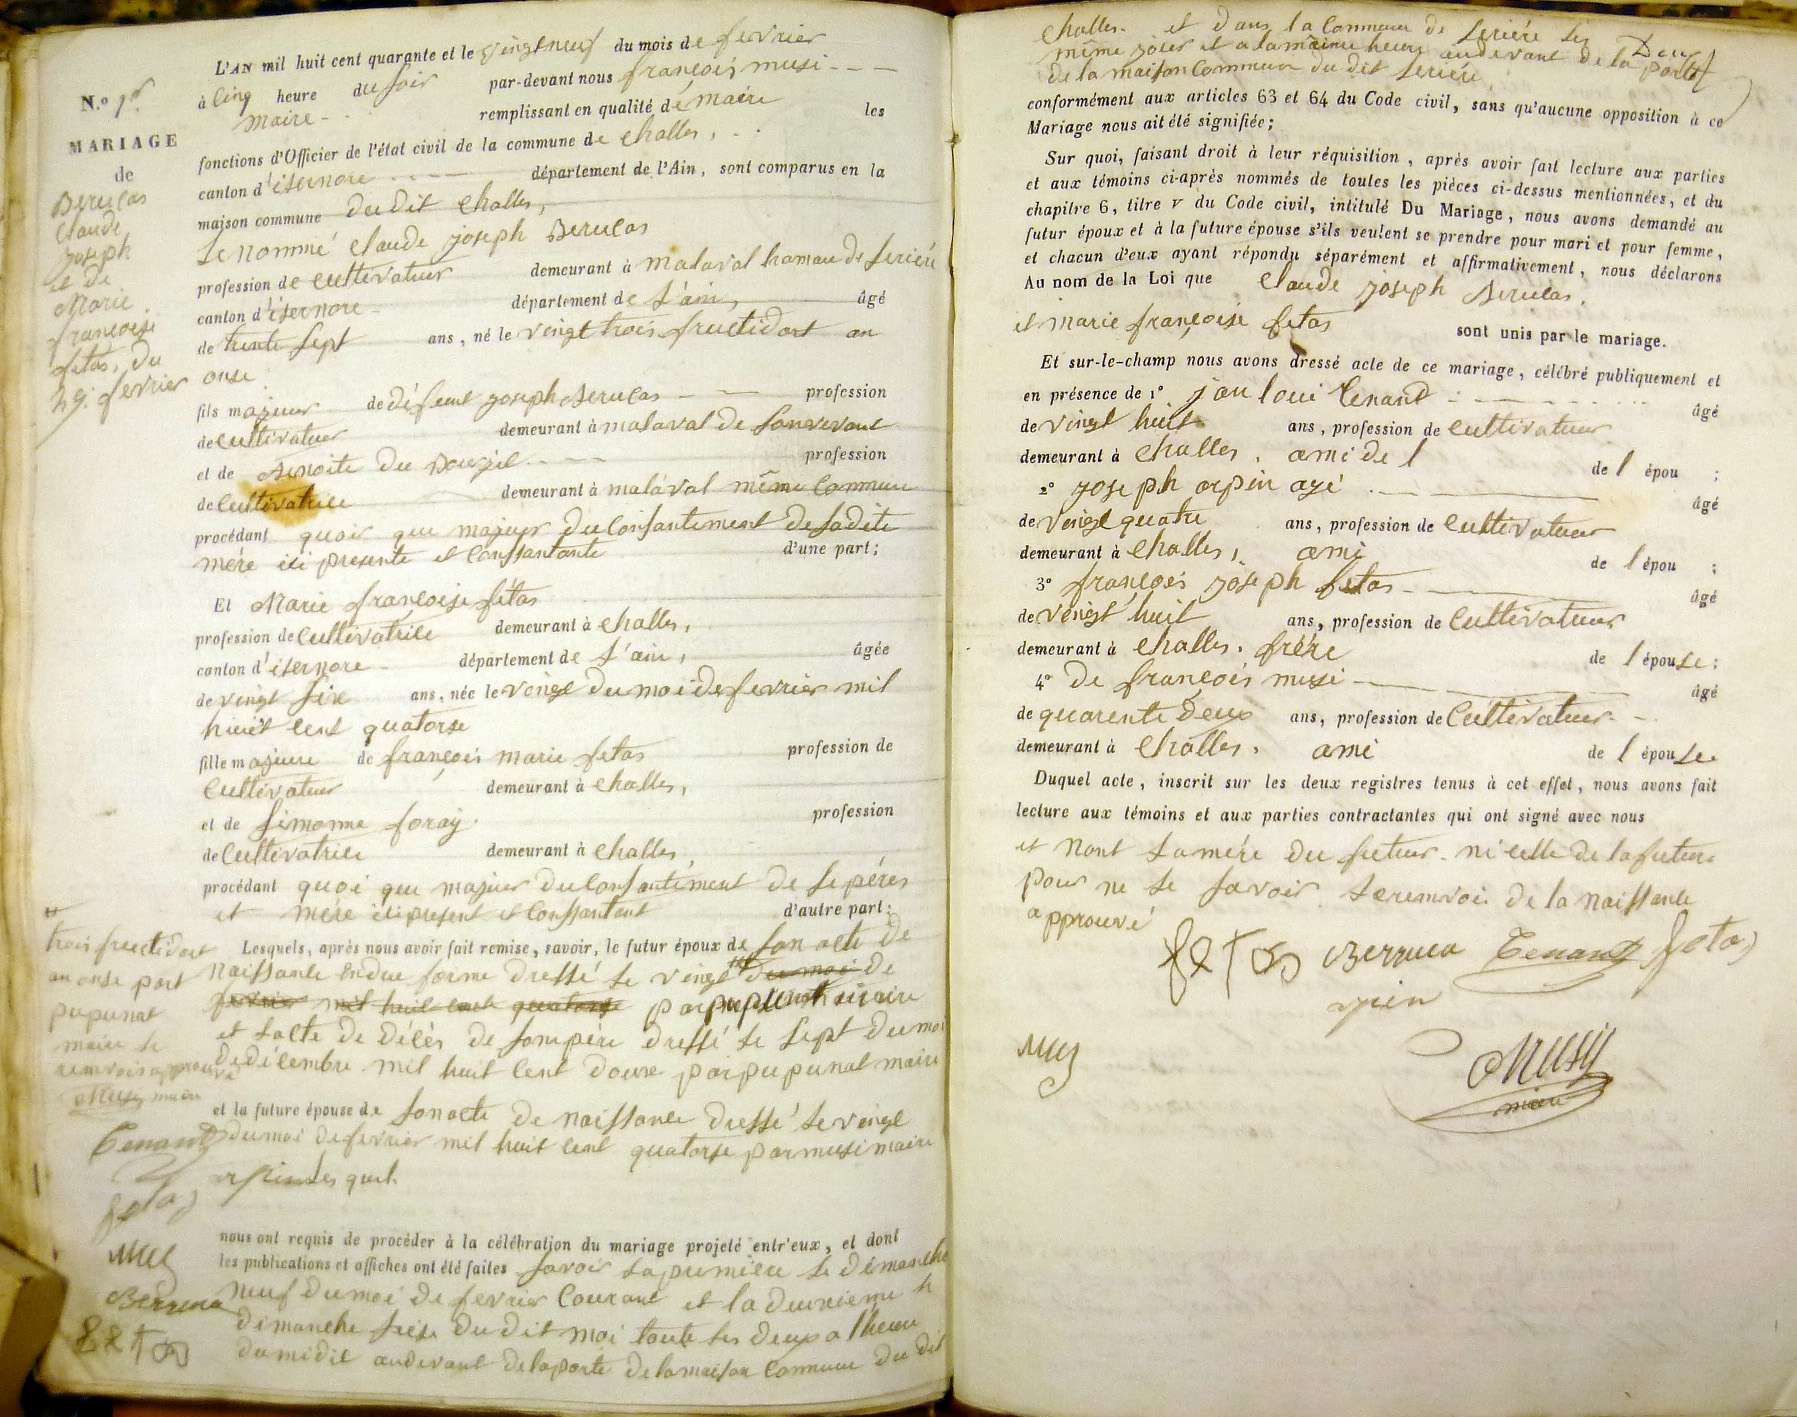 N.º 1er
MARIAGE
de
Berucas
Claude
joseph
et de
Marie
françoise
fétas, du
29. fevrier
L'AN mil huit cent quarante et le vingt neuf du mois de fevrier
à cinq heure du soir par-devant nous françois musi
maire remplissant en qualité de maire les
fonctions d'Officier de l'état civil de la commune de challes,
canton d'isernore département de l'Ain, sont comparus en la
maison commune du dit challes,
Le nommé claude joseph Berucas
profession de cultivateur demeurant à malaval hamau de Leriére
canton d'isernore département de L'ain, âgé
de trente sept ans, né le vingt trois fructidort an
onse
fils majeur de défeunt joseph Berucas profession
de cultivateur demeurant à malaval de
et de Benoite du profession
de cultivatrice demeurant à malaval même commune
procédant quoir que majeur du consantement de sadite
mère ici presente et consantante d'une part;
Et Marie françoise fétas
profession de cultivatrice demeurant à challes,
canton d'isernore département de L'ain, âgée
de vingt six ans, née le vingt du moi de fevrier mil
huit cent quatorse
fille majeure de françois marie fetas profession de
cultivateur demeurant à challes,
et de simonne foray profession
de cultivatrice demeurant à challes,
procédant quoi que majeur du consantement de se pères
et mère ici present et consantant d'autre part;
Lesquels, après nous avoir fait remise, savoir, le futur époux de son acte de
naissance en due forme dressé le vingt du moi de
fevrier mil huit cent quatorse par pupunat maire
et l'acte de décès de son père dressé le sept du moi
de décembre mil huit cent douze par pupunat maire
trois fructidort
an onse part
pupunat
maire le
remvois approuvé
Musy maire
et la future épouse de son acte de naissance dressé le vingt
du moi de fevrier mil huit cent quatorse par musi maire
Tenand
arpin Les quel.
fetas
nous ont requis de procéder à la célébration du mariage projeté entr'eux, et dont
les publications et affiches ont été faites savoir la première le dimanche
neuf du moi de fevrier courant et la deuxième le
dimanche seise du dit moi toute les deux a l'heure
du midit audevant de la porte de la maison commune du dit
Berruca
fetas
challes. et dans la commune de Leriére les Deux
même jour et a la même heure audevant de la porte
de la maison commune du dit Leriére
conformément aux articles 63 et 64 du Code civil, sans qu'aucune opposition à ce
Mariage nous ait été signifiée;
Sur quoi, faisant droit à leur réquisition, après avoir fait lecture aux parties
et aux témoins ci-après nommés de toutes les pièces ci-dessus mentionnées, et du
chapitre 6, titre V du Code civil, intitulé Du Mariage, nous avons demandé au
futur époux et à la future épouse s'ils veulent se prendre pour mari et pour femme,
et chacun d'eux ayant répondu séparément et affirmativement, nous déclarons
Au nom de la Loi que claude joseph Berucas.
et marie françoise fetas sont unis par le mariage.
Et sur-le-champ nous avons dressé acte de ce mariage, célébré publiquement et
en présence de 1º jan loui Tenand âgé
de vingt huit ans, profession de cultivateur
demeurant à challes. ami de l de l épou ;
2º joseph arpin agé âgé
de vingt quatre ans, profession de cultivateur
demeurant à challes, ami de l épou ;
3º françois joseph fetas âgé
de vingt huit ans, profession de cultivateur
demeurant à challes. frére de l épouse;
4º De françois musi âgé
de quarente deux ans, profession de cultivateur
demeurant à challes. ami de l épouse
Duquel acte, inscrit sur les deux registres tenus à cet effet, nous avons fait
lecture aux témoins et aux parties contractantes qui ont signé avec nous
et nont La mére du futeur. ni celle de la future
pour ne le savoir. Le remvoi de la naissance
approuvé
fetas Berruca Tenand fetas
arpin
Musy
maire